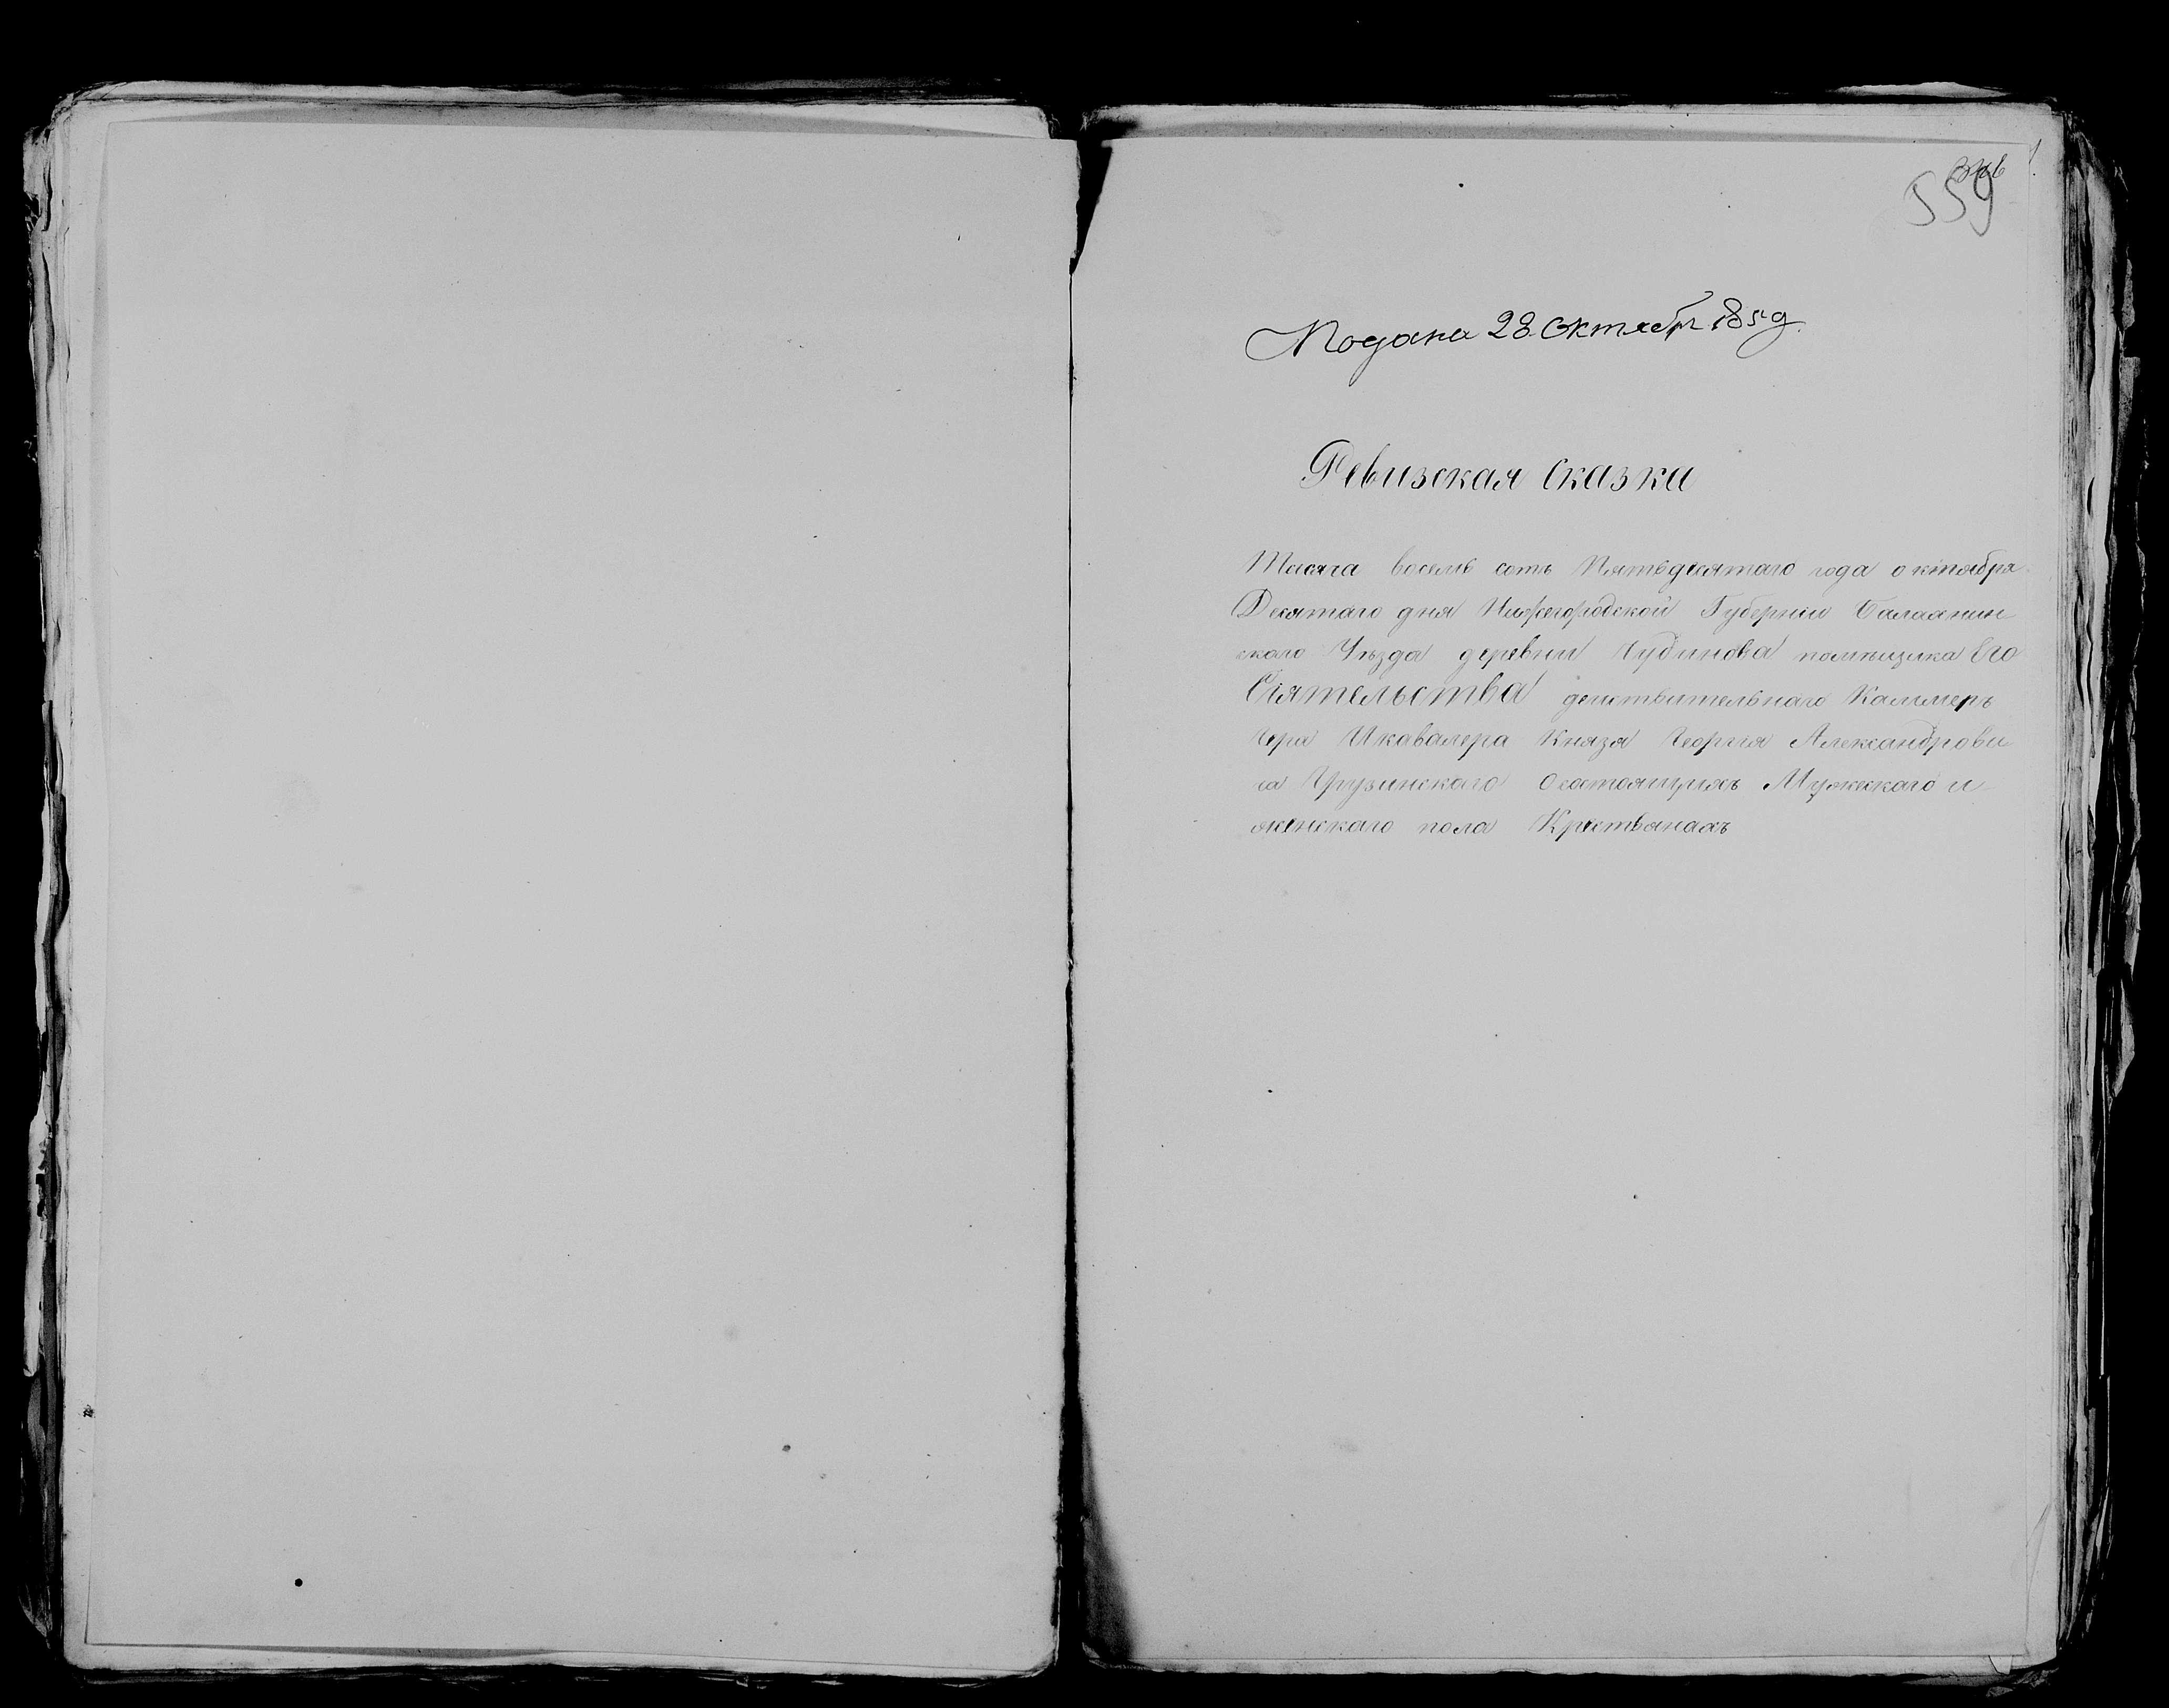 559
Подана 28 Октября 185 г.
Ревизская Сказка
Тысяча восемь сотъ Пятьдесятаго года октября
Десятаго дня Нижегородской Губерніи Балахнин
скаго Уѣзда деревни Чудинова помѣщика Его
Сіятельства действительнаго Каммеръ
гера Икавалера Князя Георгія Александрови
ча Грузинскаго Осостоящихъ Мужескаго и
женскаго пола Крестьянахъ